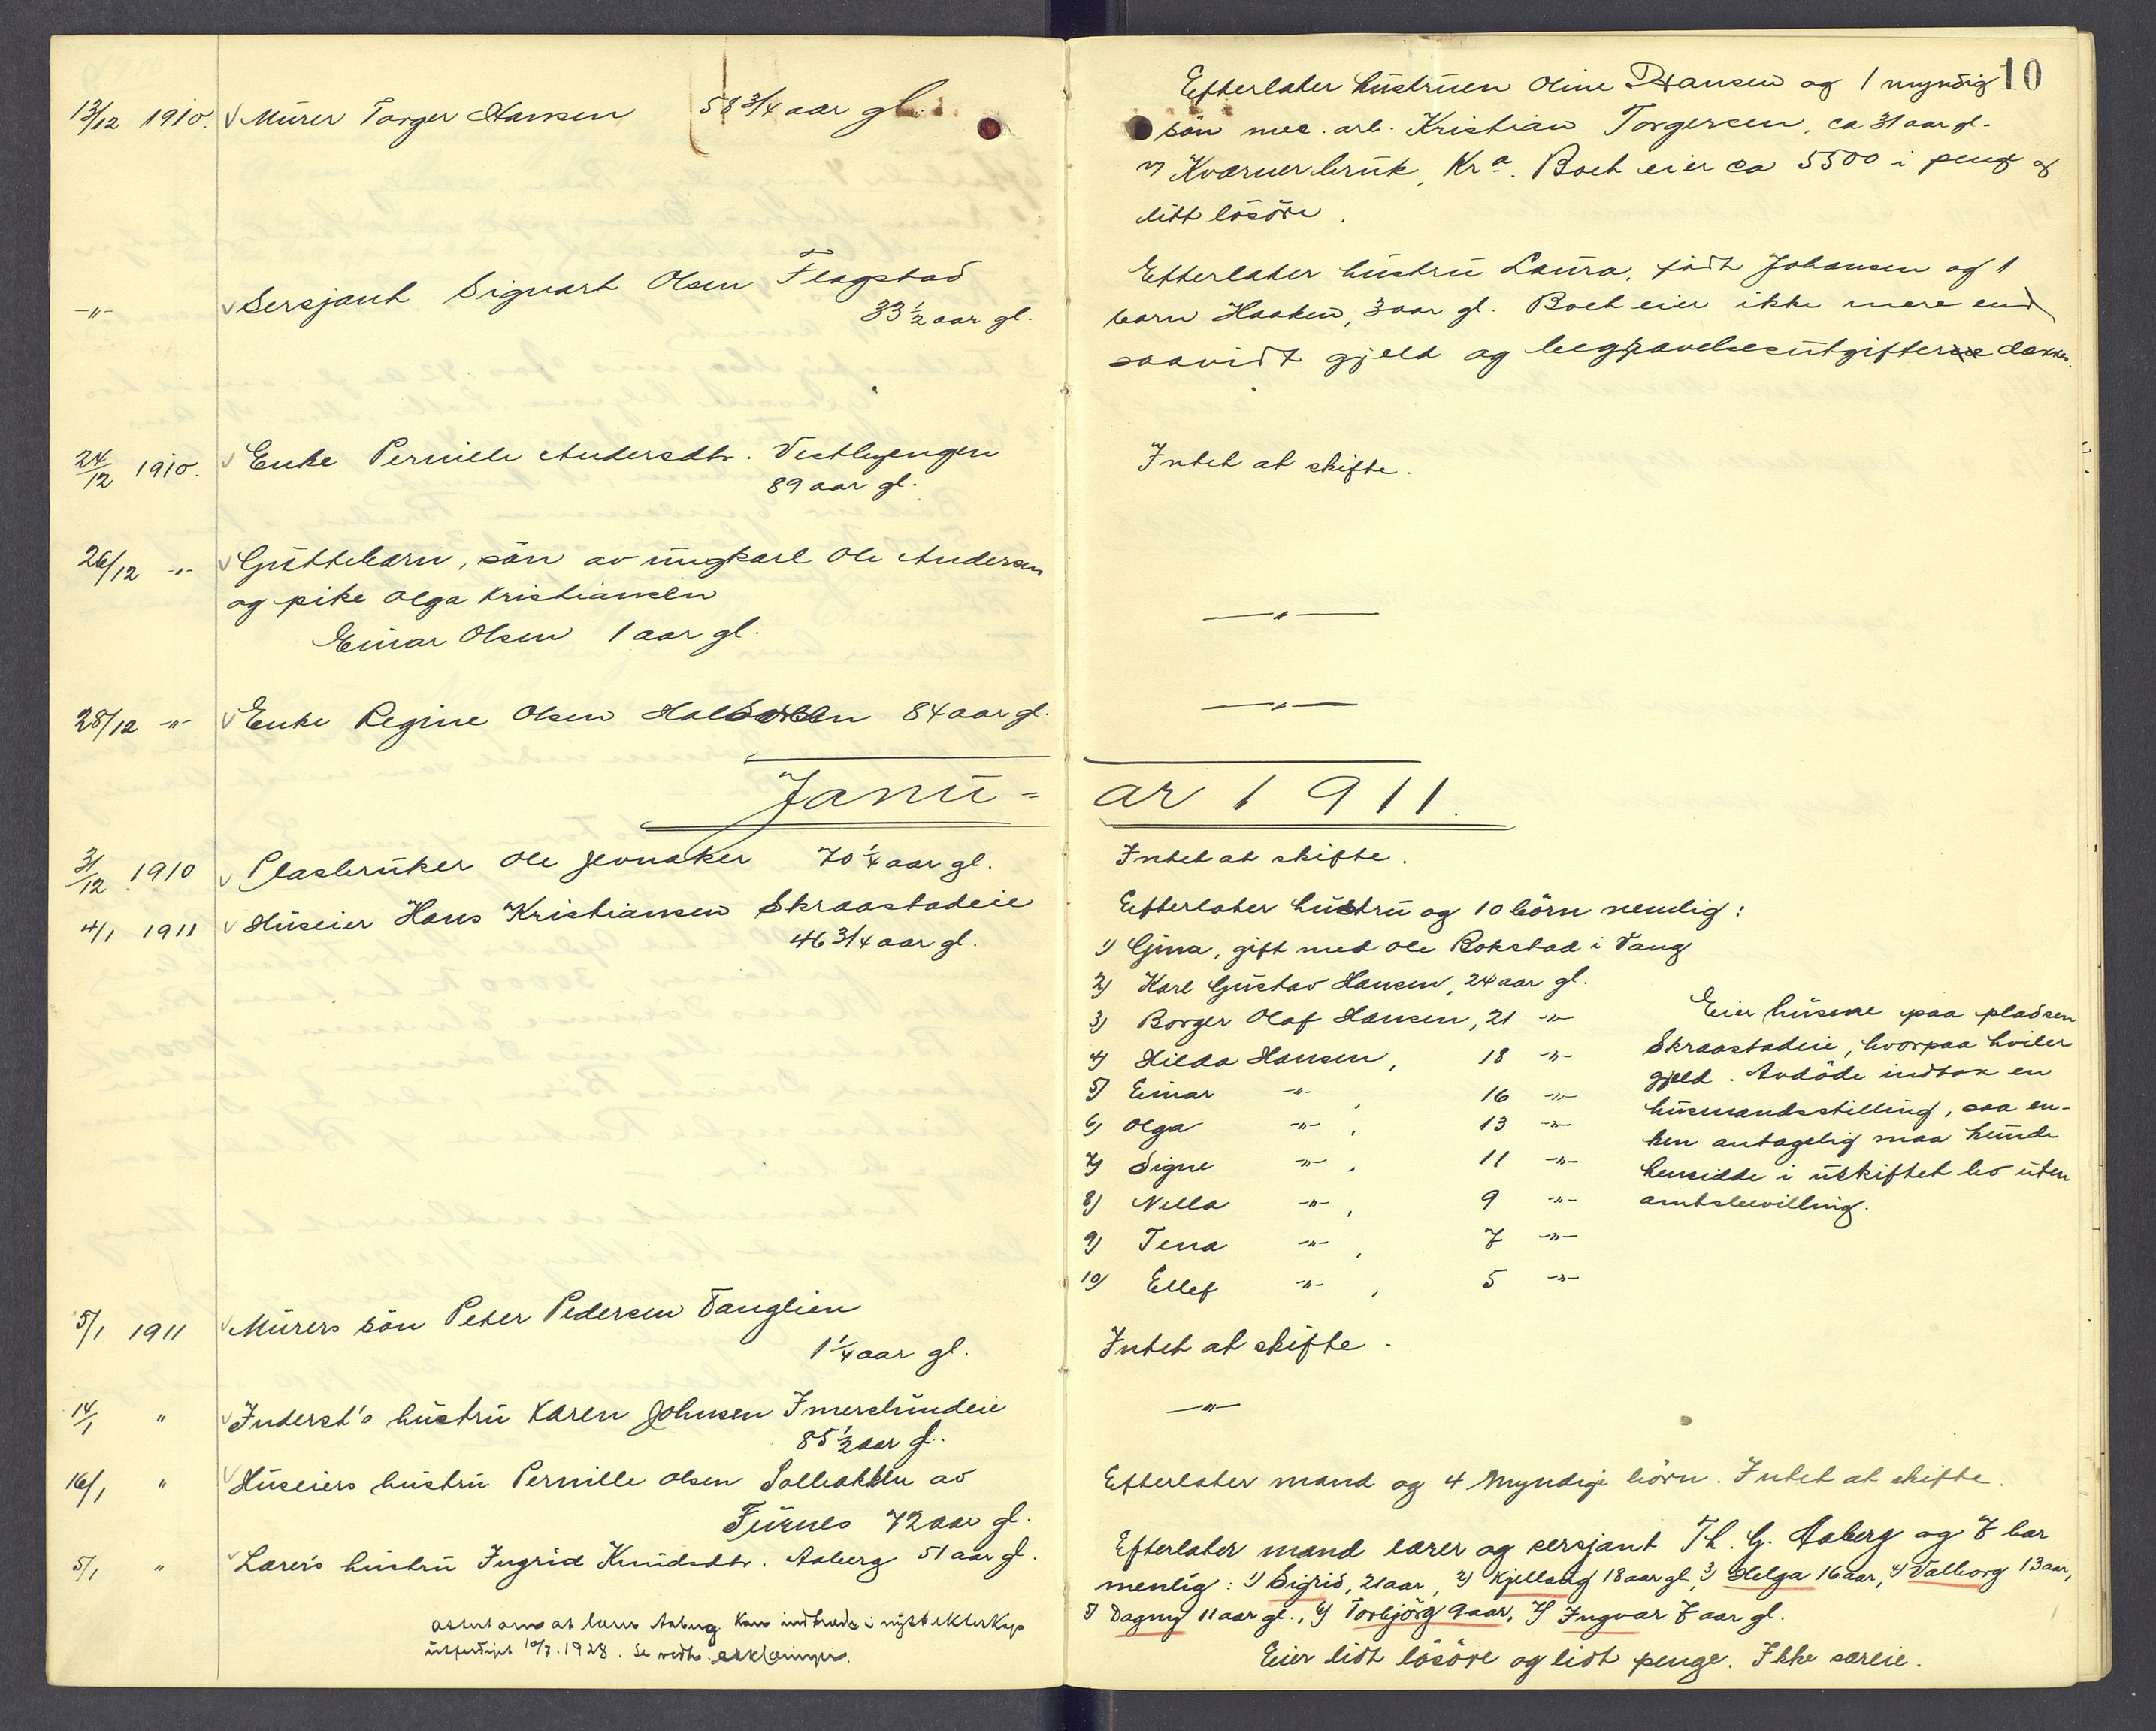 10
13/12 1910. Murer Torger Hansen 58 3/4 aar gl.
Efterlater hustruen Oline Hansen og 1 myndig
sön mec. arb. Kristian Torgersen, ca 31 aar gl.
Kværnerbruk, Kra. Boet eier ca 5500 i peng og
litt lösöre.
-"- Sersjant Sigvart Olsen Flagstad
33 1/2 aar gl.
Efterlater hustru Laura, födt Johansen og 1
barn Haaken, 3 aar gl. Boet eier ikke mere end
saavidt gjeld og begravelsesutgifterne dækkes.
24/12 1910. Enke Pernille Andersdtr. Vestbyengen
89 aar gl.
Intet at skifte.
26/12 -"- Guttebarn, sön av ungkarl Ole Andersen
og pike Olga Kristiansen
Einar Olsen 1 aar gl.
-"-
28/12 -"- Enke Regine Olsen 84 aar gl.
-"-
Janu= ar 1911.
31/12 1910 Plasbruker Ole Jevnaker 70 1/4 aar gl.
Intet at skifte.
4/1 1911 Huseier Hans Kristiansen Skraastadeie
46 3/4 aar gl.
Efterlater hustru og 10 börn nemlig:
1) Gina, gift med Ole Bokstad i Vang
2) Karl Gustav Hansen, 24 aar gl.
3) Borger Olaf Hansen, 21 -"-
4) Hilda Hansen, 18 -"-
5) Einar -"- , 16 -"-
6) Olga -"- , 13 -"-
7) Signe -"- , 11 -"-
8) Nella -"- , 9 -"-
9) Tena -"- , 7 -"-
10) Ellef -"- , 5 -"-
Eier husene paa pladsen
Skraastadeie, hvorpaa hviler
gjeld. Avdöde indtok en
husmandsstilling, saa en-
ken antagelig maa kunde
hensidde i uskiftet bo uten
amtsbevilling.
5/1 1911 Murers sön Peter Pedersen Vanglien
1 1/4 aar gl.
Intet at skifte.
14/1 " Inderst's hustru Karen Johnsen Imerslundeie
85 1/2 aar gl.
-"-
16/1 " Huseiers hustru Pernille Olsen av
Furnes 72 aar gl.
Efterlater mand og 4 myndige börn. Intet at skifte.
5/1 " Lærers hustru Ingrid Knudsdtr. Aaberg 51 aar gl.
Efterlater mand lærer og sersjant Th. G. Aaberg og 7 bar
menlig: 1) Sigrid, 21 aar, 2) Kjellaug 18 aar gl, 3) Helga 16 aar, 4) Valborg 13 aar,
5) Dagny 11 aar gl., 6) Torbjörg 9 aar, 7) Ingvar 7 aar gl.
Eier lidt lösöre og lidt penge. Ikke særeie.
at lærer Aaberg kan indtræde i nyt ekteskap
utferdiget 10/7. 1928. Se vedtr. erklæringer.